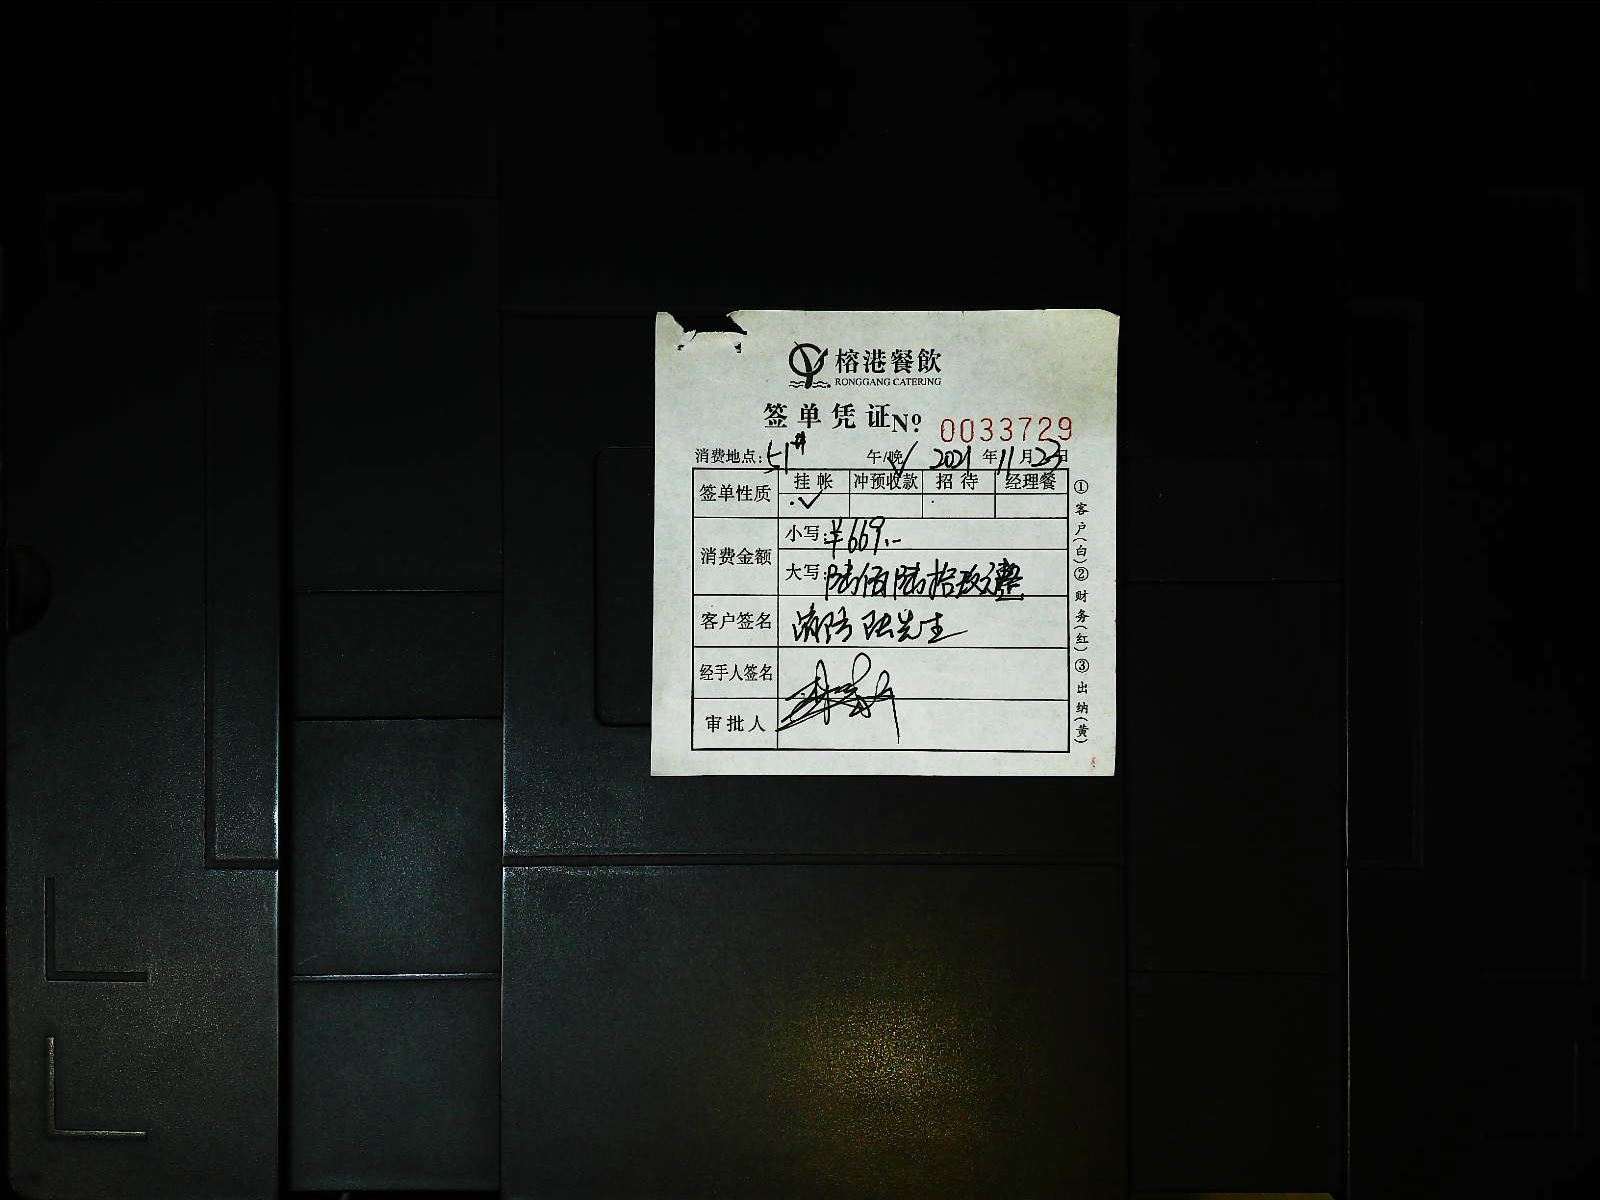 榕港餐飲
RONGGANG CATERING
签单凭证 Nº 0033729
消费地点: 51# 午/晚✓ 2021年11月23日
签单性质 挂帐 冲预收款 招待 经理餐
✓
消费金额
小写:¥669.-
大写:陆佰陆拾玖元整
客户签名 先生
经手人签名
审批人
①客户(白)②财务(红)③出纳(黄)